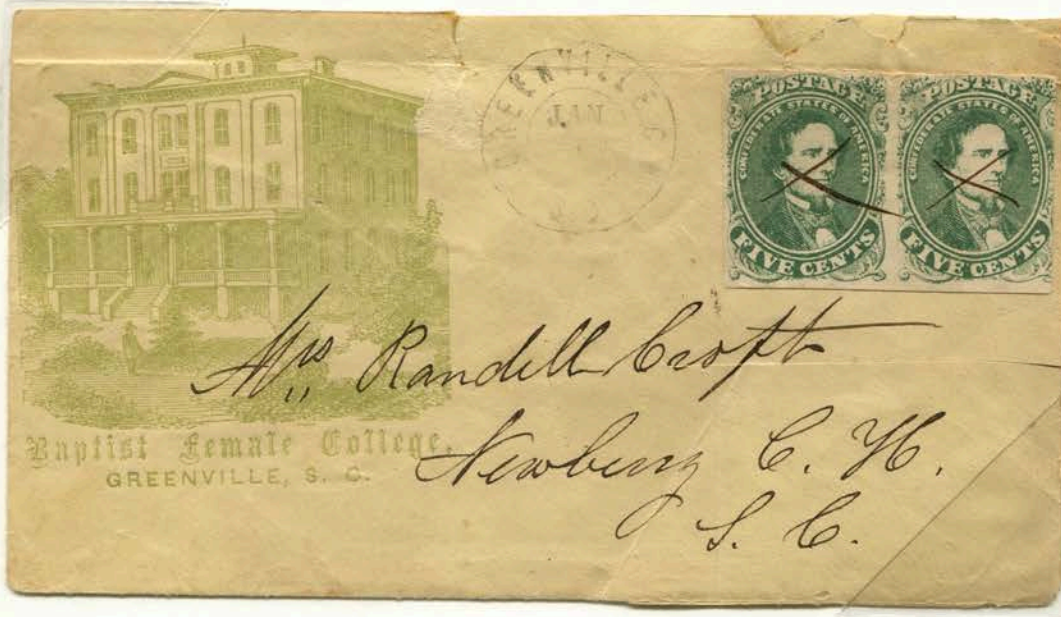 GREENVILLE S.C.
JAN
POSTAGE
CONFEDERATE STATES OF AMERICA
FIVE CENTS
POSTAGE
CONFEDERATE STATES OF AMERICA
FIVE CENTS
Mrs Randell Croft
Newberry C. H.
S. C.
Baptist Female College.
GREENVILLE, S. C.